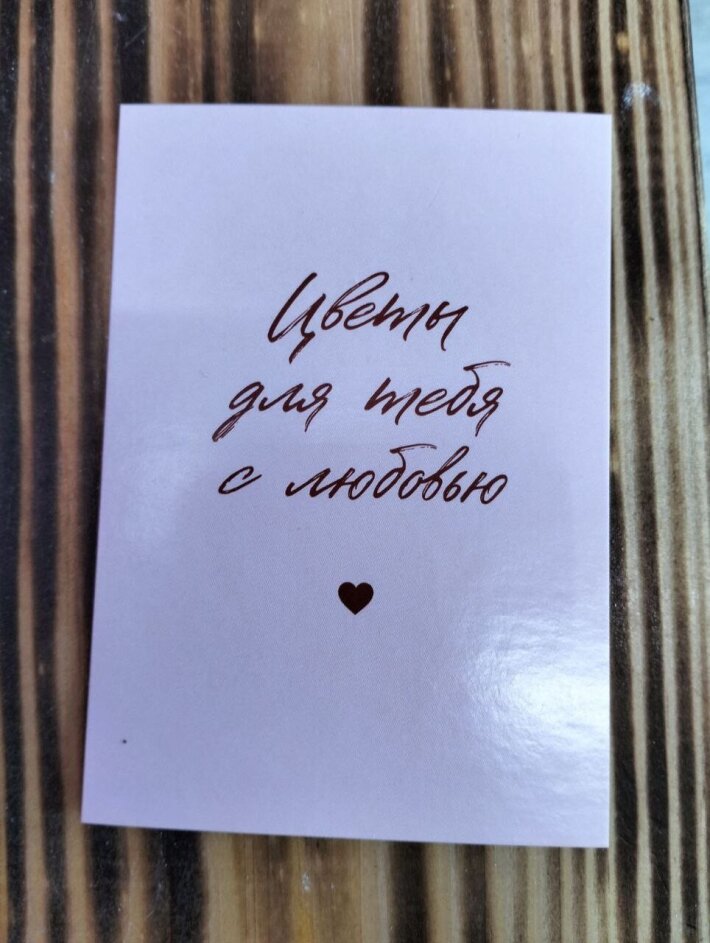 Цветы
для тебя
с любовью